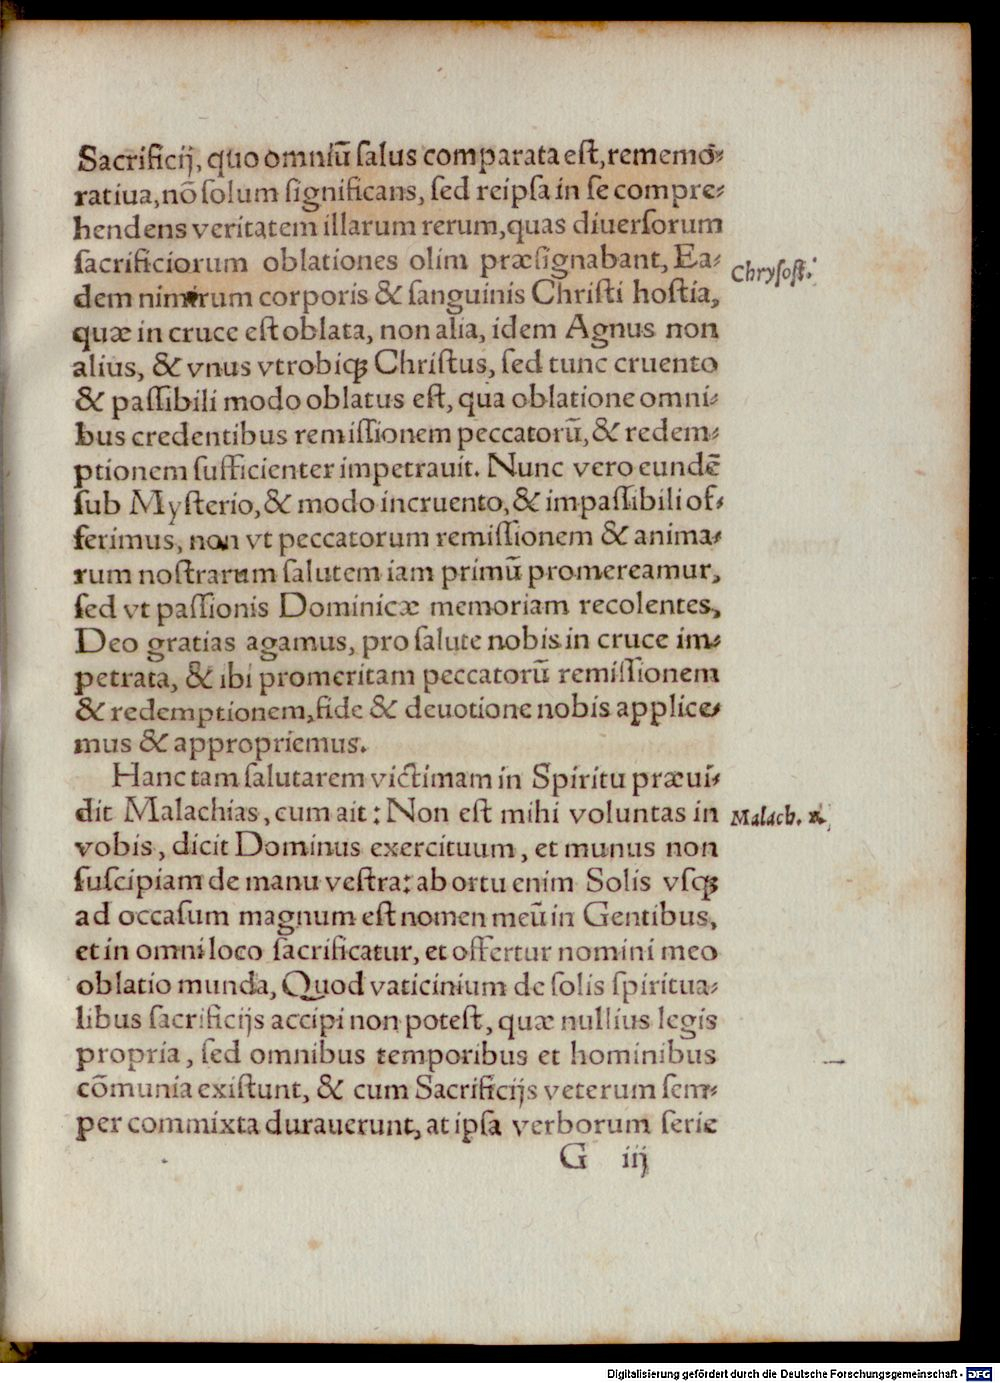 Sacrificij, quo omniũ ſalus comparata eſt, rememo⸗
ratiua, nõ ſolum ſignificans, ſed reipſa in ſe compre⸗
hendens veritatem illarum rerum, quas diuerſorum
ſacrificiorum oblationes olim præſignabant, Ea⸗
dem nimirum corporis & ſanguinis Chriſti hoſtia,
quæ in cruce eſt oblata, non alia, idem Agnus non
alius, & vnus vtrobiqꝫ Chriſtus, ſed tunc cruento
& paſſibili modo oblatus eſt, qua oblatione omni⸗
bus credentibus remiſſionem peccatorũ, & redem⸗
ptionem ſufficienter impetrauit. Nunc vero eundẽ
ſub Myſterio, & modo incruento, & impaſſibili of⸗
ferimus, non vt peccatorum remiſſionem & anima⸗
rum noſtrarum ſalutem iam primũ promereamur,
ſed vt paſſionis Dominicæ memoriam recolentes,
Deo gratias agamus, pro ſalute nobis in cruce im⸗
petrata, & ibi promeritam peccatorũ remiſſionem
& redemptionem, fide & deuotione nobis applice⸗
mus & appropriemus.
Hanc tam ſalutarem victimam in Spiritu præui⸗
dit Malachias, cum ait: Non eſt mihi voluntas in
vobis, dicit Dominus exercituum, et munus non
ſuſcipiam de manu veſtra: ab ortu enim Solis vſqꝫ
ad occaſum magnum eſt nomen meũ in Gentibus,
et in omni loco ſacrificatur, et offertur nomini meo
oblatio munda, Quod vaticinium de ſolis ſpiritua⸗
libus ſacrificijs accipi non poteſt, quæ nullius legis
propria, ſed omnibus temporibus et hominibus
cõmunia exiſtunt, & cum Sacrificijs veterum ſem⸗
per commixta durauerunt, at ipſa verborum ſerie
G iij
Chryſoſt.
Malach.
Digitalisierung gefördert durch die Deutsche Forschungsgemeinschaft - DFG